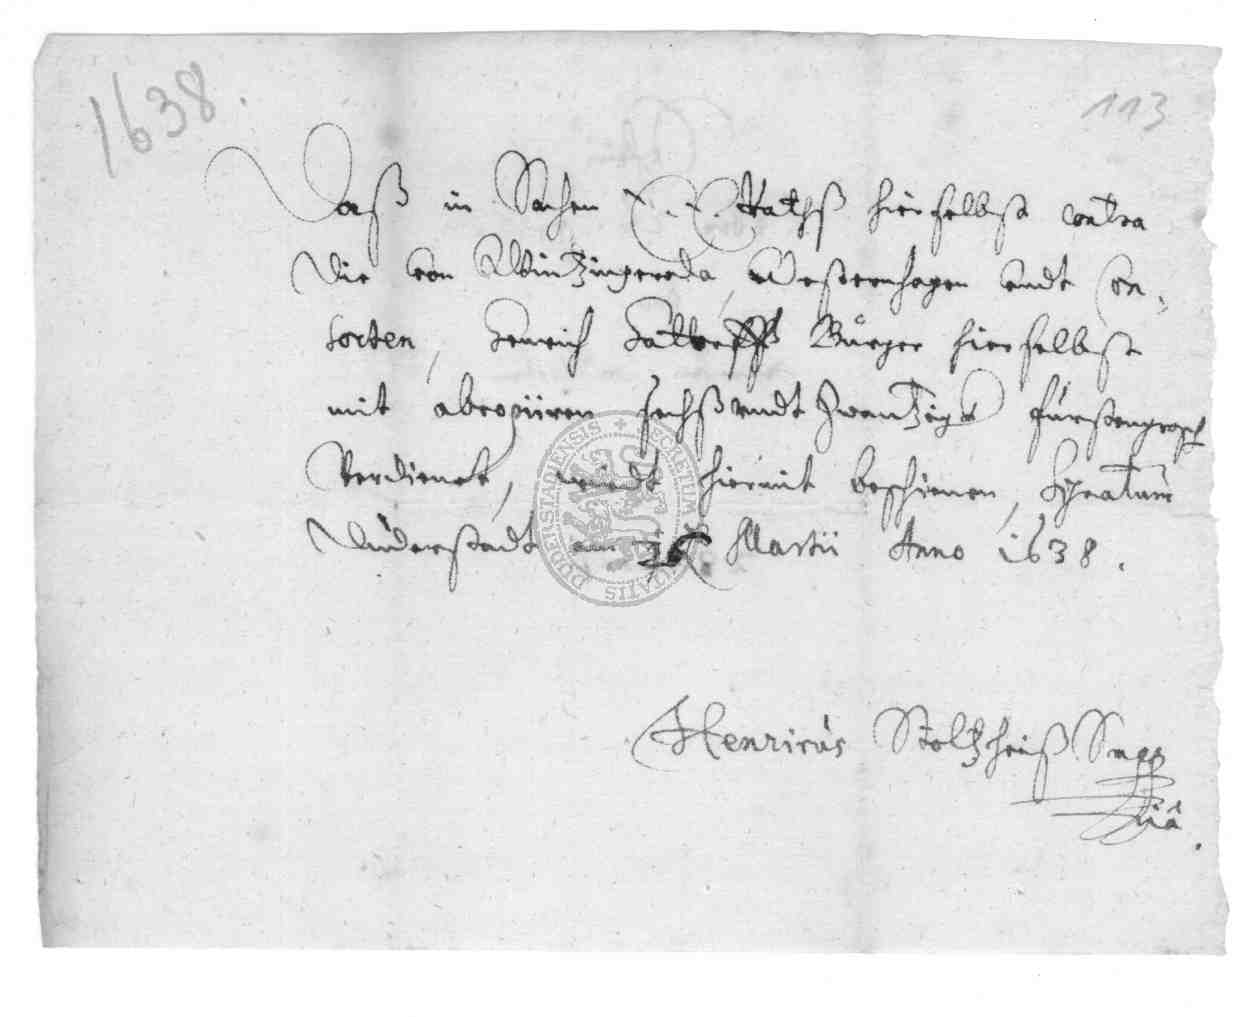 1638.
113
Daß in Sachen E. E. Raths hierselbst contra
die von Wintzingeroda, Westernhagen undt Con-
sorten, Henrich Bürger hierselbst
mit abcopiiren sechß undt zwantzigk fürstengrosch
verdienet, wirdt hiermit beschienen, Signatum
Duderstadt am Martii Anno 1638.
Henricus Stoltzheuß Smpp
SECRETUM DUDERSTADIENSIS